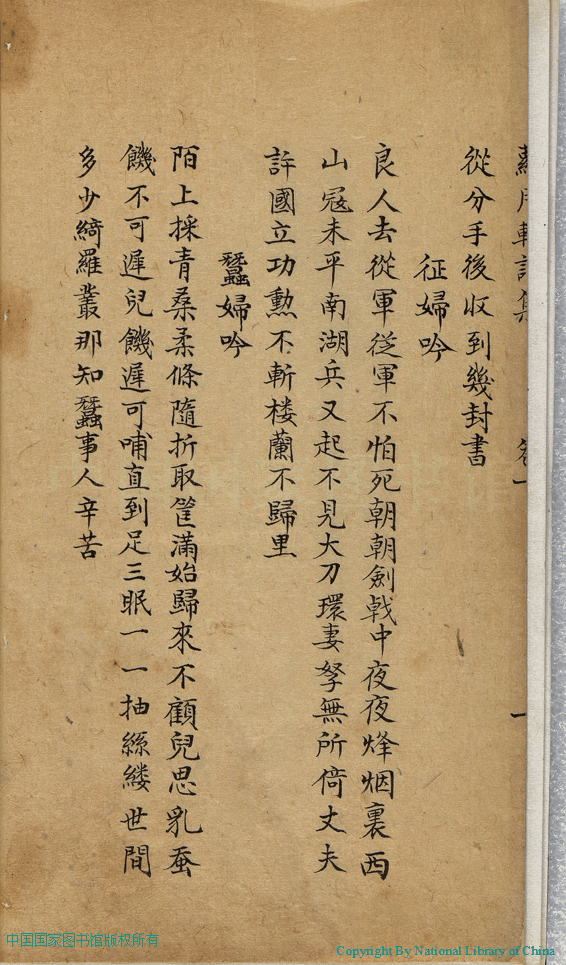 從分手後收到幾封書
征婦吟
良人去從軍從軍不怕死朝朝劍戟中夜夜烽烟裏西
山冦未平南湖兵又起不見大刀環妻孥無所倚丈夫
許國立功勲不斬楼蘭不歸里
蠶婦吟
陌上採青桑柔條隨折取筐滿始歸來不顧兒思乳蚕
饑不可遲兒饑遲可哺直到足三眠一一抽絲縷世間
多少綺羅叢那知蠶事人辛苦
中国国家图书馆版权所有
Copyright By National Library of China